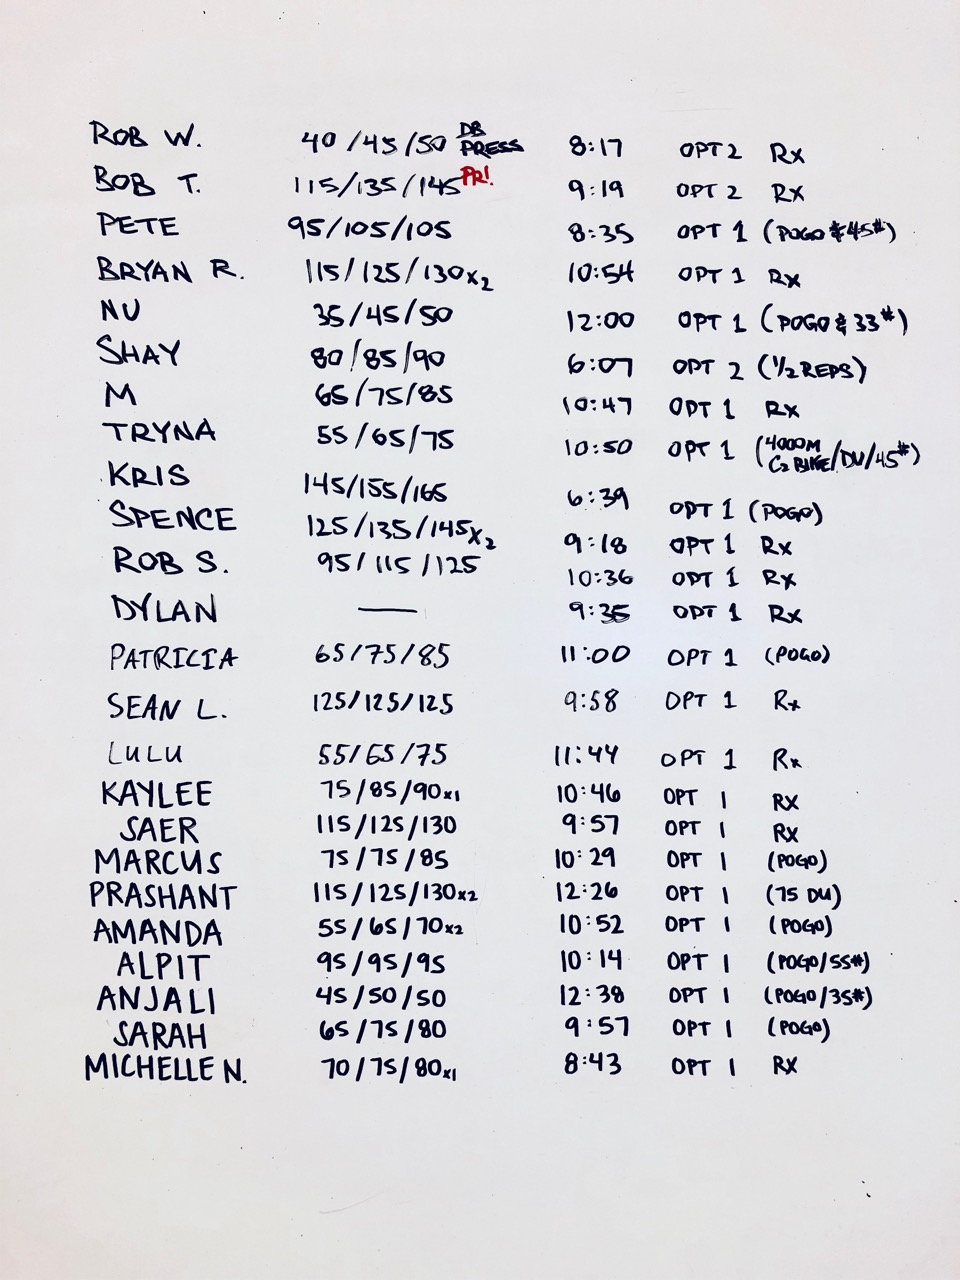 ROB W. 40/45/50 DB PRESS 8:17 OPT 2 Rx
BOB T. 115/135/145 PR! 9:19 OPT 2 Rx
PETE 95/105/105 8:35 OPT 1 (POGO & 45#)
BRYAN R. 115/125/130x2 10:54 OPT 1 Rx
NU 35/45/50 12:00 OPT 1 (POGO & 33#)
SHAY 80/85/90 6:07 OPT 2 (1/2 REPS)
M 65/75/85 10:47 OPT 1 Rx
TRYNA 55/65/75 10:50 OPT 1 (4000M C2 BIKE/DU/45#)
KRIS 145/155/165 6:39 OPT 1 (POGO)
SPENCE 125/135/145x2 9:18 OPT 1 Rx
ROB S. 95/115/125 10:36 OPT 1 Rx
DYLAN — 9:35 OPT 1 Rx
PATRICIA 65/75/85 11:00 OPT 1 (POGO)
SEAN L. 125/125/125 9:58 OPT 1 Rx
LULU 55/65/75 11:44 OPT 1 Rx
KAYLEE 75/85/90x1 10:46 OPT 1 RX
SAER 115/125/130 9:57 OPT 1 RX
MARCUS 75/75/85 10:29 OPT 1 (POGO)
PRASHANT 115/125/130x2 12:26 OPT 1 (75 DU)
AMANDA 55/65/70x2 10:52 OPT 1 (POGO)
ALPIT 95/95/95 10:14 OPT 1 (POGO/55#)
ANJALI 45/50/50 12:38 OPT 1 (POGO/35#)
SARAH 65/75/80 9:57 OPT 1 (POGO)
MICHELLE N. 70/75/80x1 8:43 OPT 1 RX